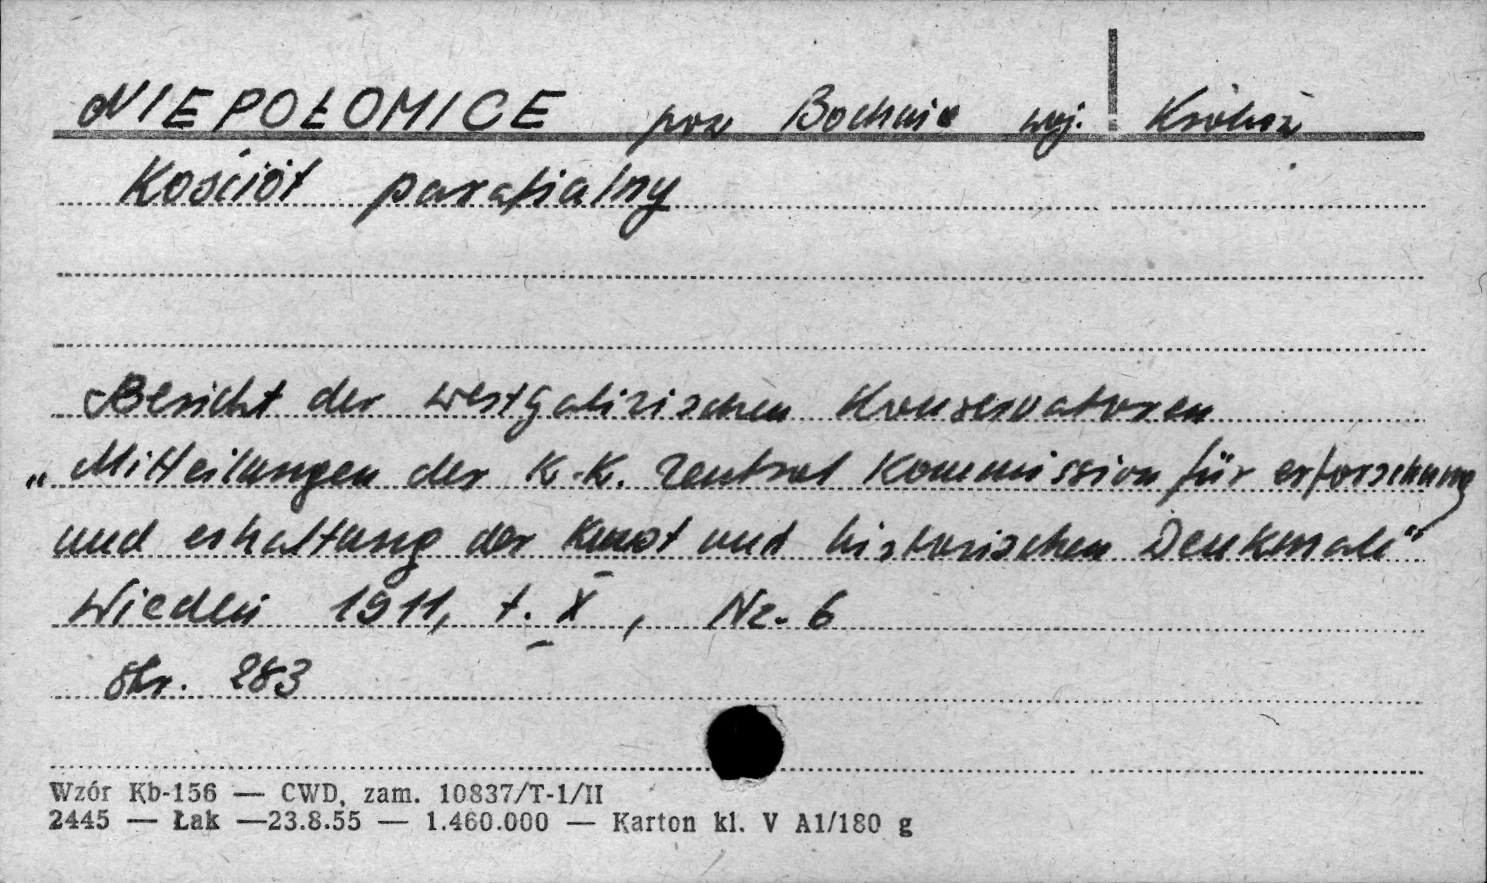 NIEPOŁOMICE pow Bochnia woj. Kraków
Kościół parafialny
Bericht der westgalizischen Konservatoren
„Mitteilungen der K.-K. Zentral Kommission für erforschung
und erhaltung der Kunst und historischen Denkmale"
Wiedeń 1911, t. X, Nr. 6
str. 283
Wzór Kb-156 — CWD, zam. 10837/T-1/II
2445 — Łak —23.8.55 — 1.460.000 — Karton kl. V A1/180 g